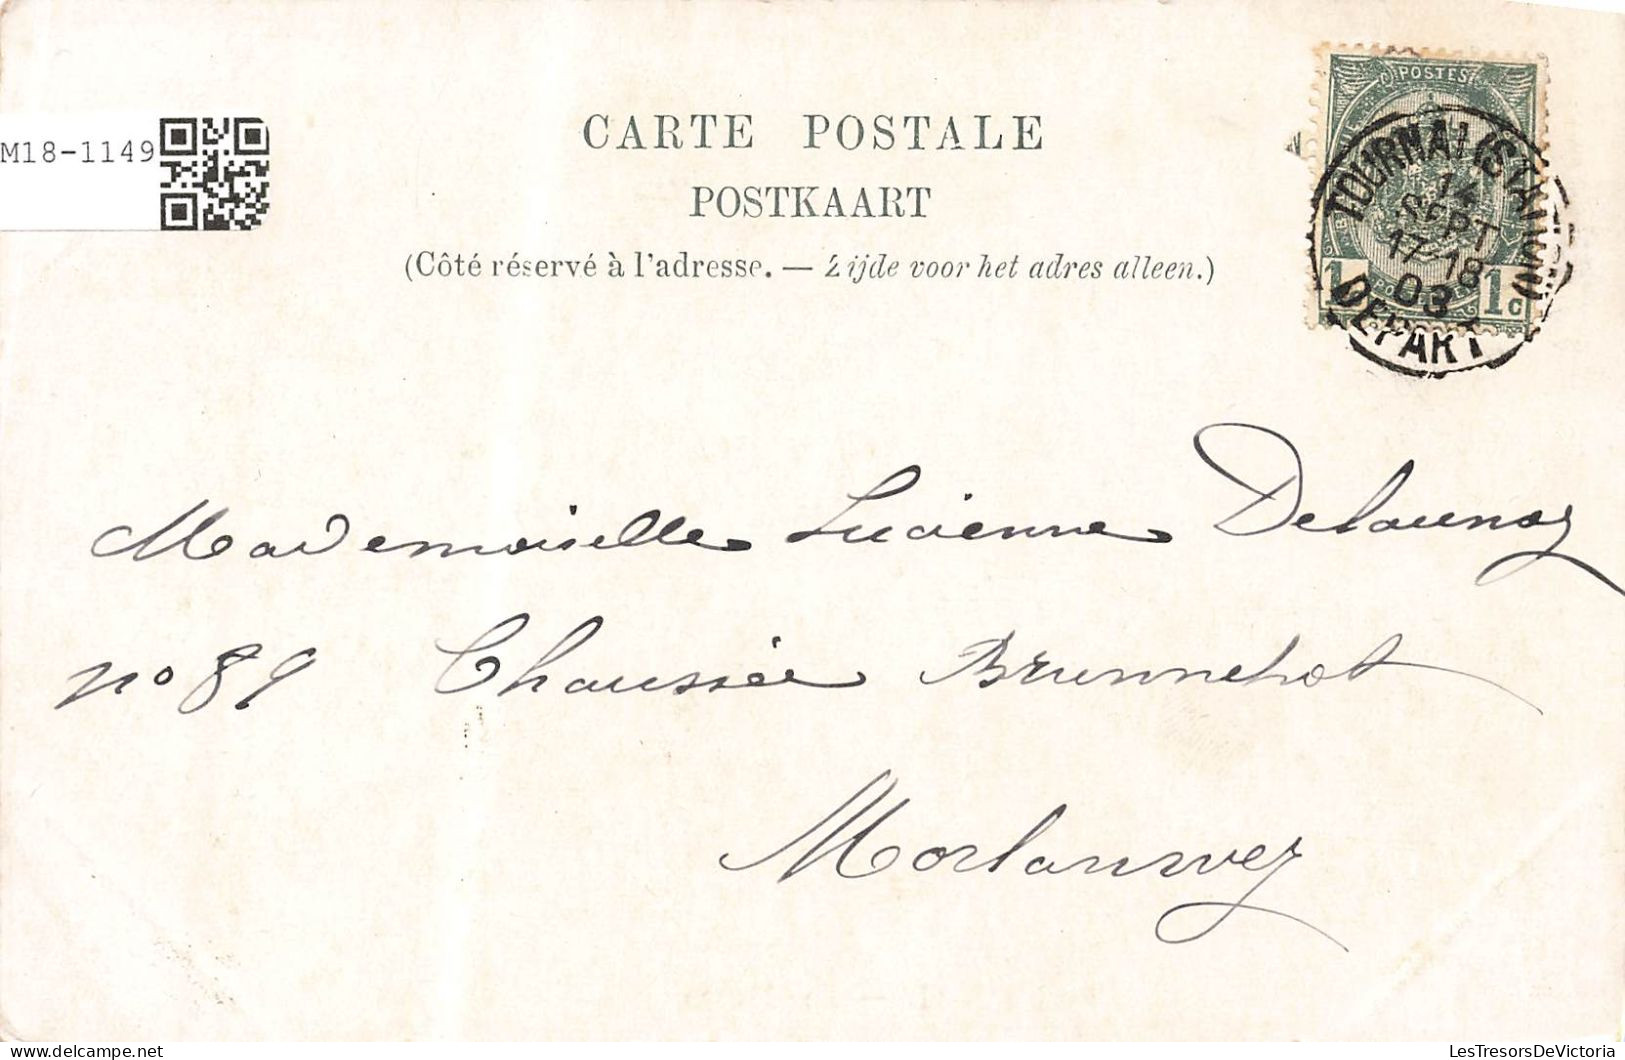 CARTE POSTALE
POSTKAART
(Côté réservé à l'adresse. — Zijde voor het adres alleen.)
M18-1149
POSTES
1 1c
TOURNAI (STATION)
14
SEPT
17-18
03
DEPART
Mademoiselle Lucienne Delaunoy
no 89 Chaussée Brunnehot
Morlanwez
LesTresorsDeVictoria